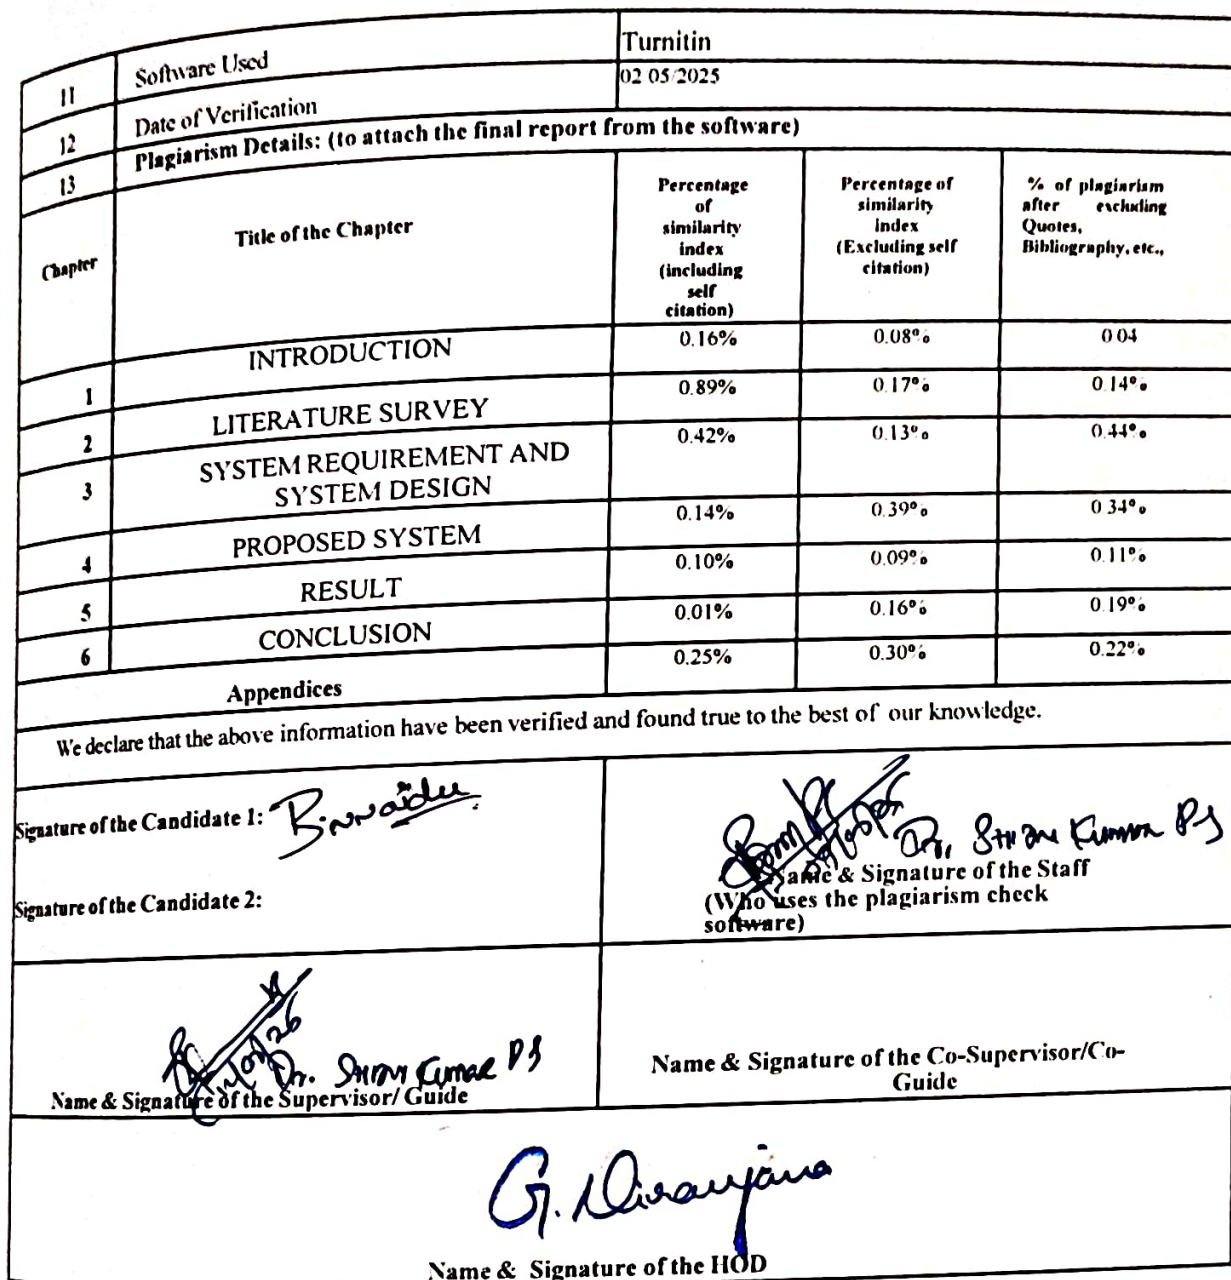 11 Software Used Turnitin
12 Date of Verification 02 05/2025
13 Plagiarism Details: (to attach the final report from the software)
Chapter
Title of the Chapter
Percentage
of
similarity
index
(including
self
citation)
Percentage of
similarity
index
(Excluding self
citation)
% of plagiarism
after excluding
Quotes,
Bibliography, etc.,
1 INTRODUCTION 0.16% 0.08% 0 04
2 LITERATURE SURVEY 0.89% 0.17% 0.14%
3 SYSTEM REQUIREMENT AND
SYSTEM DESIGN 0.42% 0.13% 0.44%
4 PROPOSED SYSTEM 0.14% 0.39% 0 34%
5 RESULT 0.10% 0.09% 0.11%
6 CONCLUSION 0.01% 0.16% 0.19%
Appendices 0.25% 0.30% 0.22%
We declare that the above information have been verified and found true to the best of our knowledge.
Signature of the Candidate 1:
Signature of the Candidate 2:
Dr. Kumar PS
Name & Signature of the Staff
(Who uses the plagiarism check
software)
Dr. Kumar PS
Name & Signature of the Supervisor/ Guide
Name & Signature of the Co-Supervisor/Co-
Guide
G. Niranjana
Name & Signature of the HOD